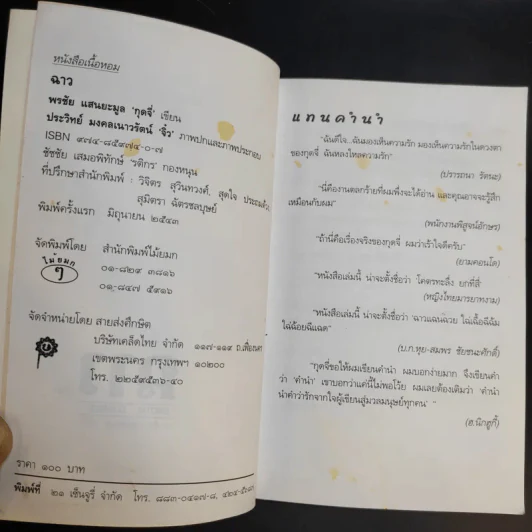 หนังสือเนื้อหอม
ฉาว
พรชัย แสนยะมูล 'กุดจี่' เขียน
ประวิทย์ มงคลเนาวรัตน์ 'จิ๋ว' ภาพปกและภาพประกอบ
ISBN ๙๗๔-๘๕๙๗๔-๐-๗
ชัชชัย เสมอพิทักษ์ 'รติกร' กองหนุน
ที่ปรึกษาสำนักพิมพ์ : วิจิตร สุวินทวงศ์, สุดใจ ประถมแก้ว,
สุมิตรา ฉัตรชลบุษย์
พิมพ์ครั้งแรก มิถุนายน ๒๕๔๓
จัดพิมพ์โดย สำนักพิมพ์ไม้ยมก
ไม้ยมก
ๆ
๐๑-๘๒๙ ๓๘๑๖
๐๑-๘๔๗ ๕๙๑๖
จัดจำหน่ายโดย สายส่งศึกษิต
บริษัทเคล็ดไทย จำกัด ๑๑๗-๑๑๙ ถ.เฟื่องนคร
เขตพระนคร กรุงเทพฯ ๑๐๒๐๐
โทร. ๒๒๕๙๕๓๖-๔๐
ราคา ๑๐๐ บาท
พิมพ์ที่ ๒๑ เซ็นจูรี่ จำกัด โทร. ๘๘๓-๐๔๑๗-๘,
แทนคำนำ
"ฉันดีใจ..ฉันมองเห็นความรัก มองเห็นความรักในดวงตา
ของกุดจี่ ฉันหลงใหลความรัก"
(ปรารถนา รัตนะ)
"นี่คืองานตลกร้ายที่ผมพึ่งจะได้อ่าน และคุณอาจจะรู้สึก
เหมือนกับผม"
(พนักงานพิสูจน์อักษร)
"ถ้านี่คือเรื่องจริงของกุดจี่ ผมว่าเร้าใจดีครับ"
(ยามคอนโด)
"หนังสือเล่มนี้ น่าจะตั้งชื่อว่า 'โคตรทะลึ่ง ยกที่สี่'
(หญิงไทยมารยาทงาม)
"หนังสือเล่มนี้ น่าจะตั้งชื่อว่า 'ฉาวแฉนฉวย ไฉ่เนื้อฉีฉ้ม
ไฉ่น้อยฉีแฉด"
(บ.ก.ทุย-สมพร ชัยชนะศักดิ์)
"กุดจี่ขอให้ผมเขียนคำนำ ผมบอกง่ายมาก จึงเขียนคำ
ว่า 'คำนำ' เขาบอกว่าแค่นี้ไม่พอโว้ย ผมเลยต้องเติมว่า 'คำนำ
นำคำว่ารักจากใจผู้เขียนสู่มวลมนุษย์ทุกคน' "
(ฮ.นิกฮูกี้)